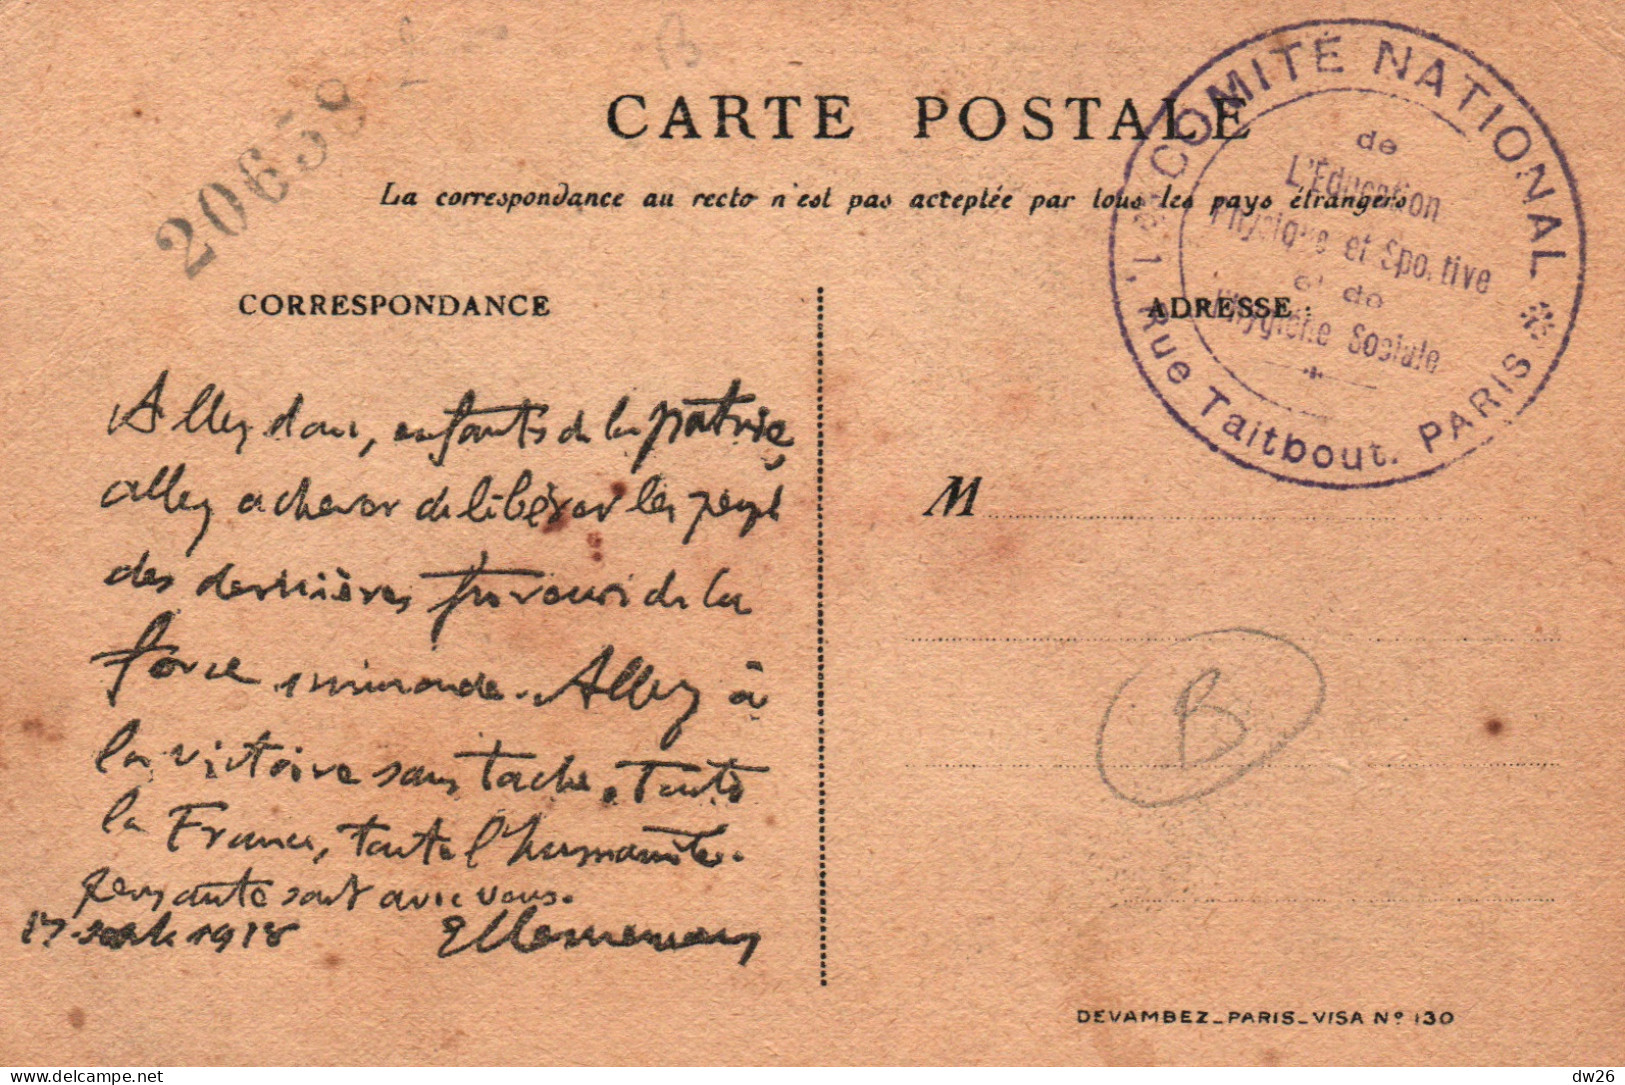 20659
B
CARTE POSTALE
La correspondance au recto n'est pas acceptée par tous les pays étrangers
COMITÉ NATIONAL
de
L'Éducation
Physique et Sportive
et de
l'Hygiène Sociale
Rue Taitbout. PARIS
CORRESPONDANCE
ADRESSE :
Allez donc, enfants de la patrie,
allez achever de libérer les peuples
des dernières fureurs de la
force immonde. Allez à
la victoire sans tache. Toute
la France, toute l'humanité
pensante sont avec vous.
17 sept 1918 Clemenceau
M
B
DEVAMBEZ_PARIS_VISA Nº 130
dw26